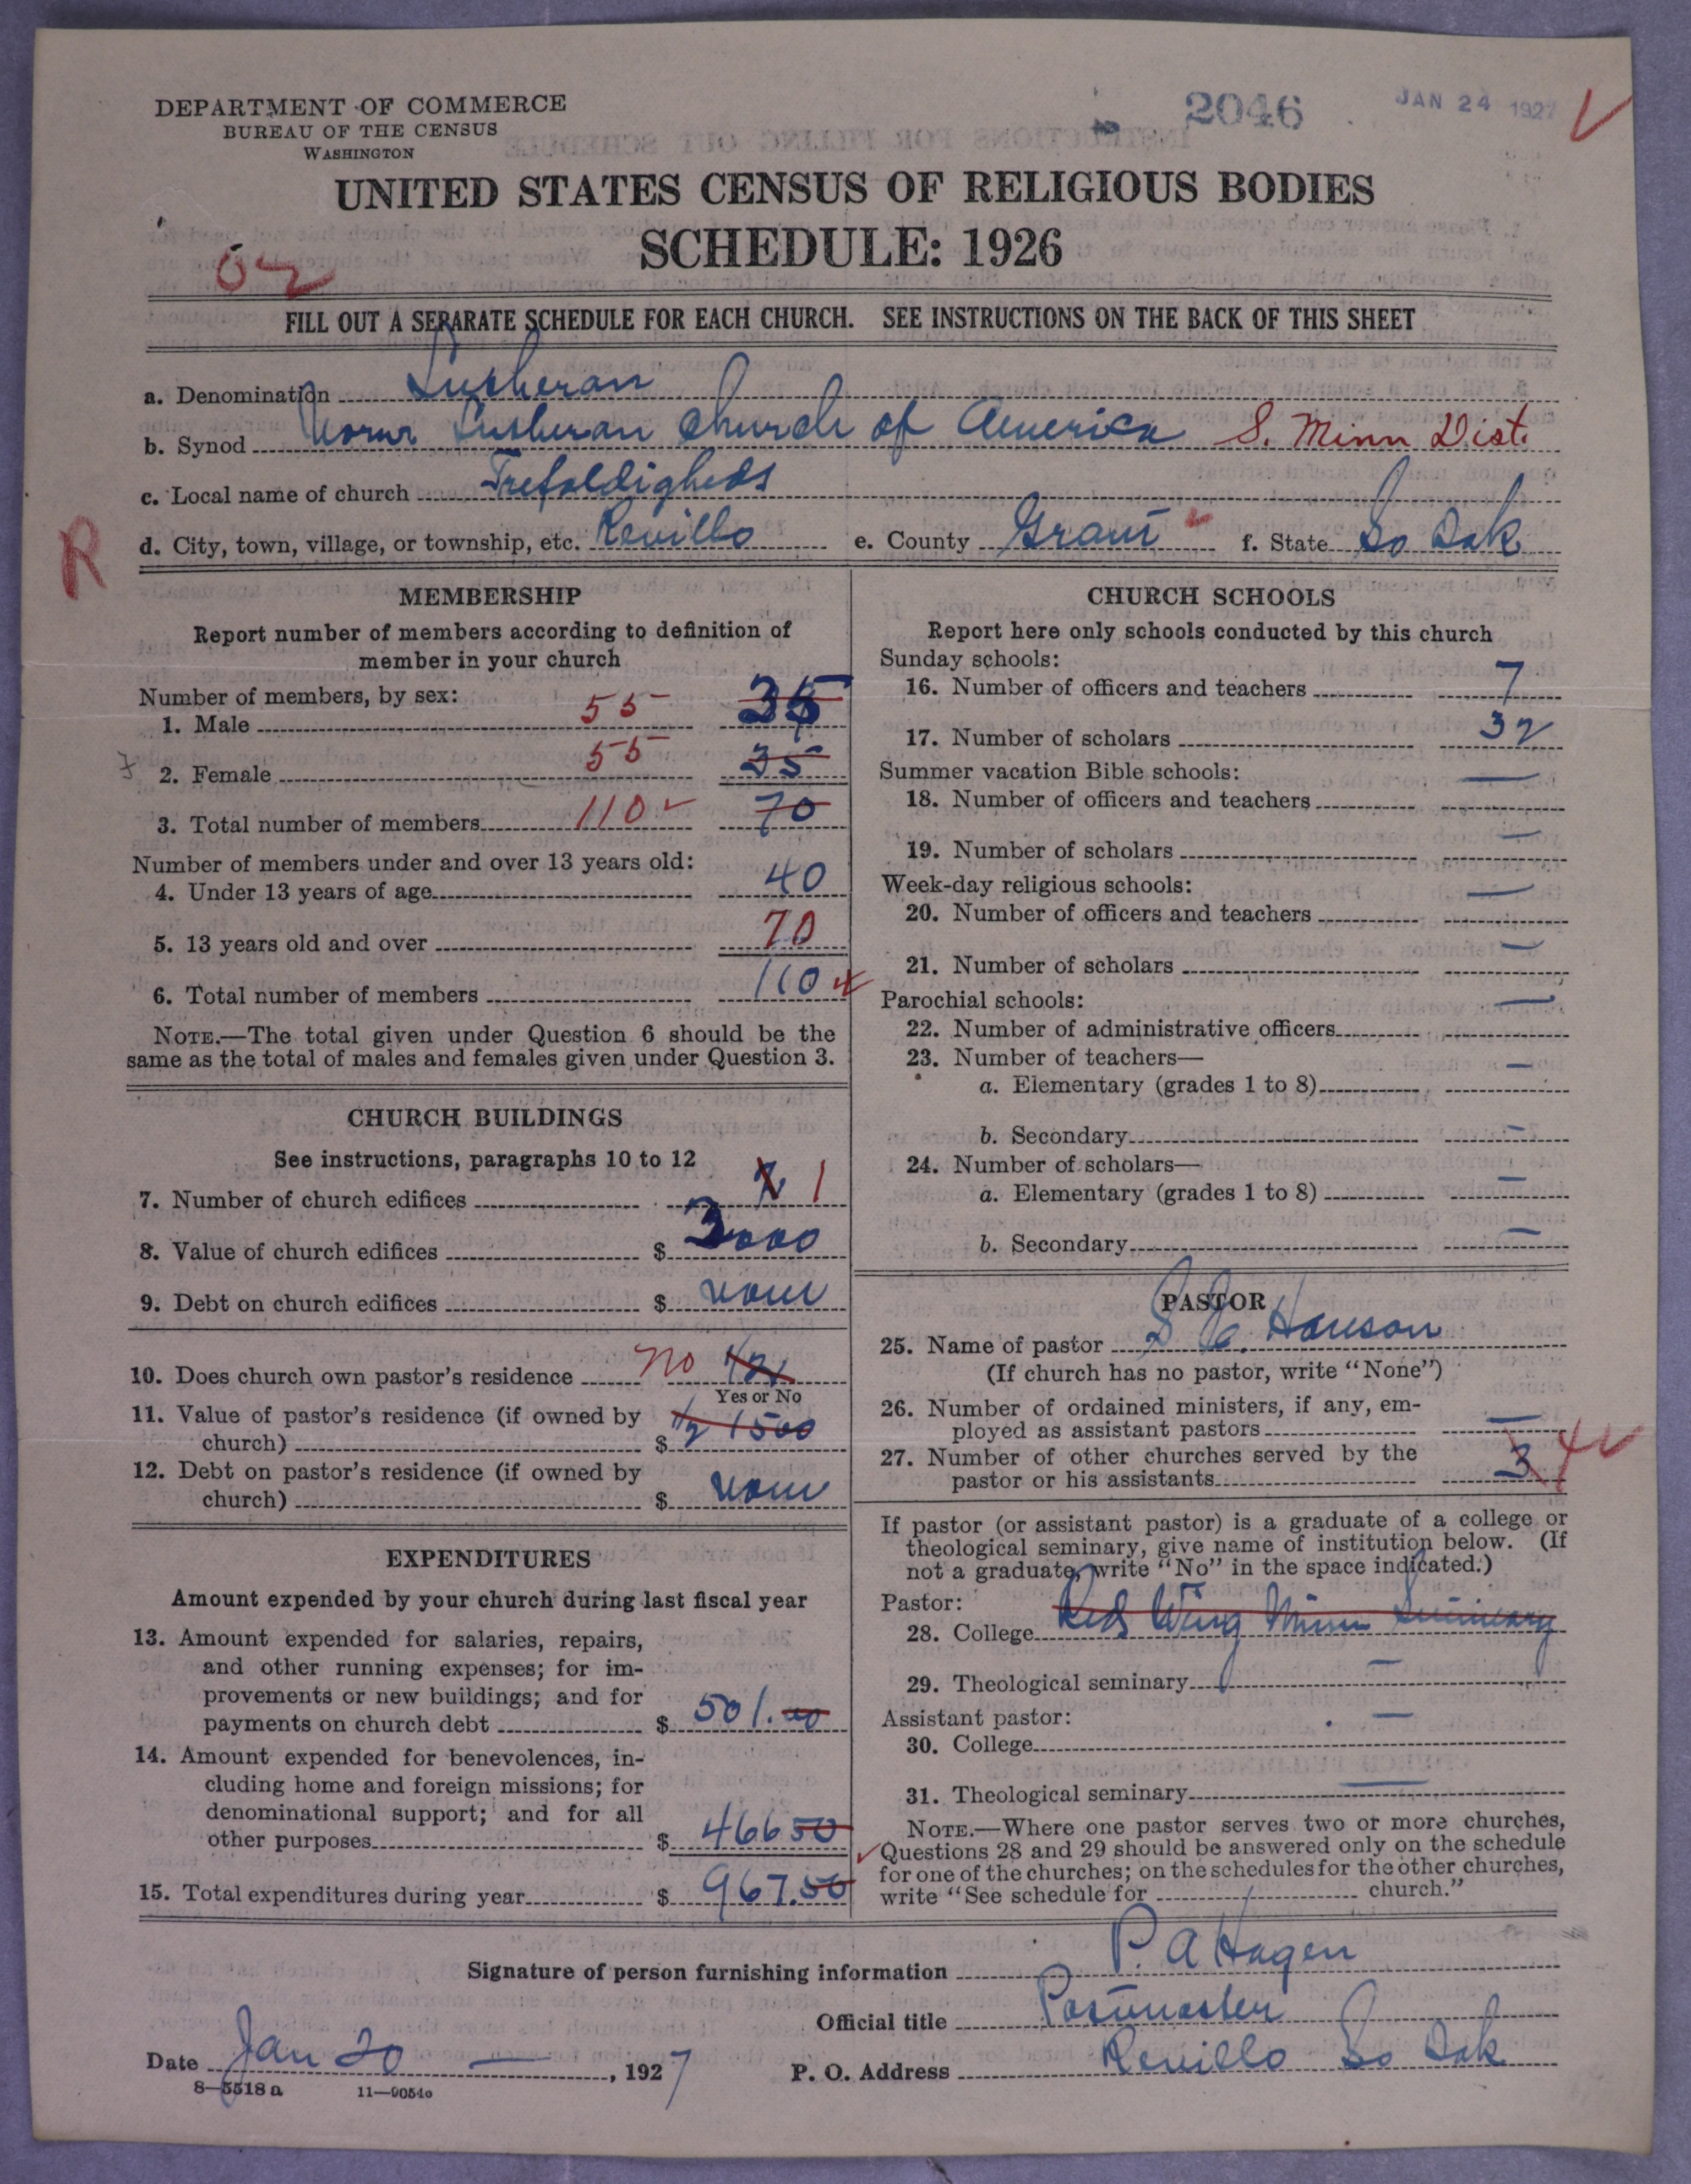 DEPARTMENT OF COMMERCE
BUREAU OF THE CENSUS
WASHINGTON
2046
JAN 24 1927
UNITED STATES CENSUS OF RELIGIOUS BODIES
SCHEDULE: 1926
FILL OUT A SEPARATE SCHEDULE FOR EACH CHURCH. SEE INSTRUCTIONS ON THE BACK OF THIS SHEET
a. Denomination Lutheran
b. Synod Lutheran Church of America S. Minn Dist.
c. Local name of church Trefoldigheds
R
d. City, town, village, or township, etc. Revillo e. County Grant f. State So Dak
MEMBERSHIP
Report number of members according to definition of
member in your church
Number of members, by sex:
1. Male 55 35
2. Female 55 35
3. Total number of members 110 70
Number of members under and over 13 years old:
4. Under 13 years of age 40
5. 13 years old and over 70
6. Total number of members 110
NOTE.—The total given under Question 6 should be the
same as the total of males and females given under Question 3.
CHURCH BUILDINGS
See instructions, paragraphs 10 to 12
7. Number of church edifices 1
8. Value of church edifices $ 3000
9. Debt on church edifices $ none
10. Does church own pastor's residence No 1/2
Yes or No
11. Value of pastor's residence (if owned by
church) $ 1/2 1500
12. Debt on pastor's residence (if owned by
church) $ none
EXPENDITURES
Amount expended by your church during last fiscal year
13. Amount expended for salaries, repairs,
and other running expenses; for im-
provements or new buildings; and for
payments on church debt $ 501.00
14. Amount expended for benevolences, in-
cluding home and foreign missions; for
denominational support; and for all
other purposes $ 466 50
15. Total expenditures during year $ 967.50
CHURCH SCHOOLS
Report here only schools conducted by this church
Sunday schools:
16. Number of officers and teachers 7
17. Number of scholars 32
Summer vacation Bible schools:
18. Number of officers and teachers —
19. Number of scholars —
Week-day religious schools:
20. Number of officers and teachers —
21. Number of scholars —
Parochial schools:
22. Number of administrative officers —
23. Number of teachers—
a. Elementary (grades 1 to 8) —
b. Secondary —
24. Number of scholars—
a. Elementary (grades 1 to 8) —
b. Secondary —
PASTOR
25. Name of pastor Hanson
(If church has no pastor, write "None")
26. Number of ordained ministers, if any, em-
ployed as assistant pastors —
27. Number of other churches served by the
pastor or his assistants 3 4
If pastor (or assistant pastor) is a graduate of a college or
theological seminary, give name of institution below. (If
not a graduate, write "No" in the space indicated.)
Pastor:
28. College Red Wing Minn Seminary
29. Theological seminary —
Assistant pastor:
30. College —
31. Theological seminary —
NOTE.—Where one pastor serves two or more churches,
Questions 28 and 29 should be answered only on the schedule
for one of the churches; on the schedules for the other churches,
write "See schedule for church."
Signature of person furnishing information P. A Hagen
Official title Postmaster
Date Jan 20 —, 1927 P. O. Address Revillo So Dak
8—5518 a 11—9054o